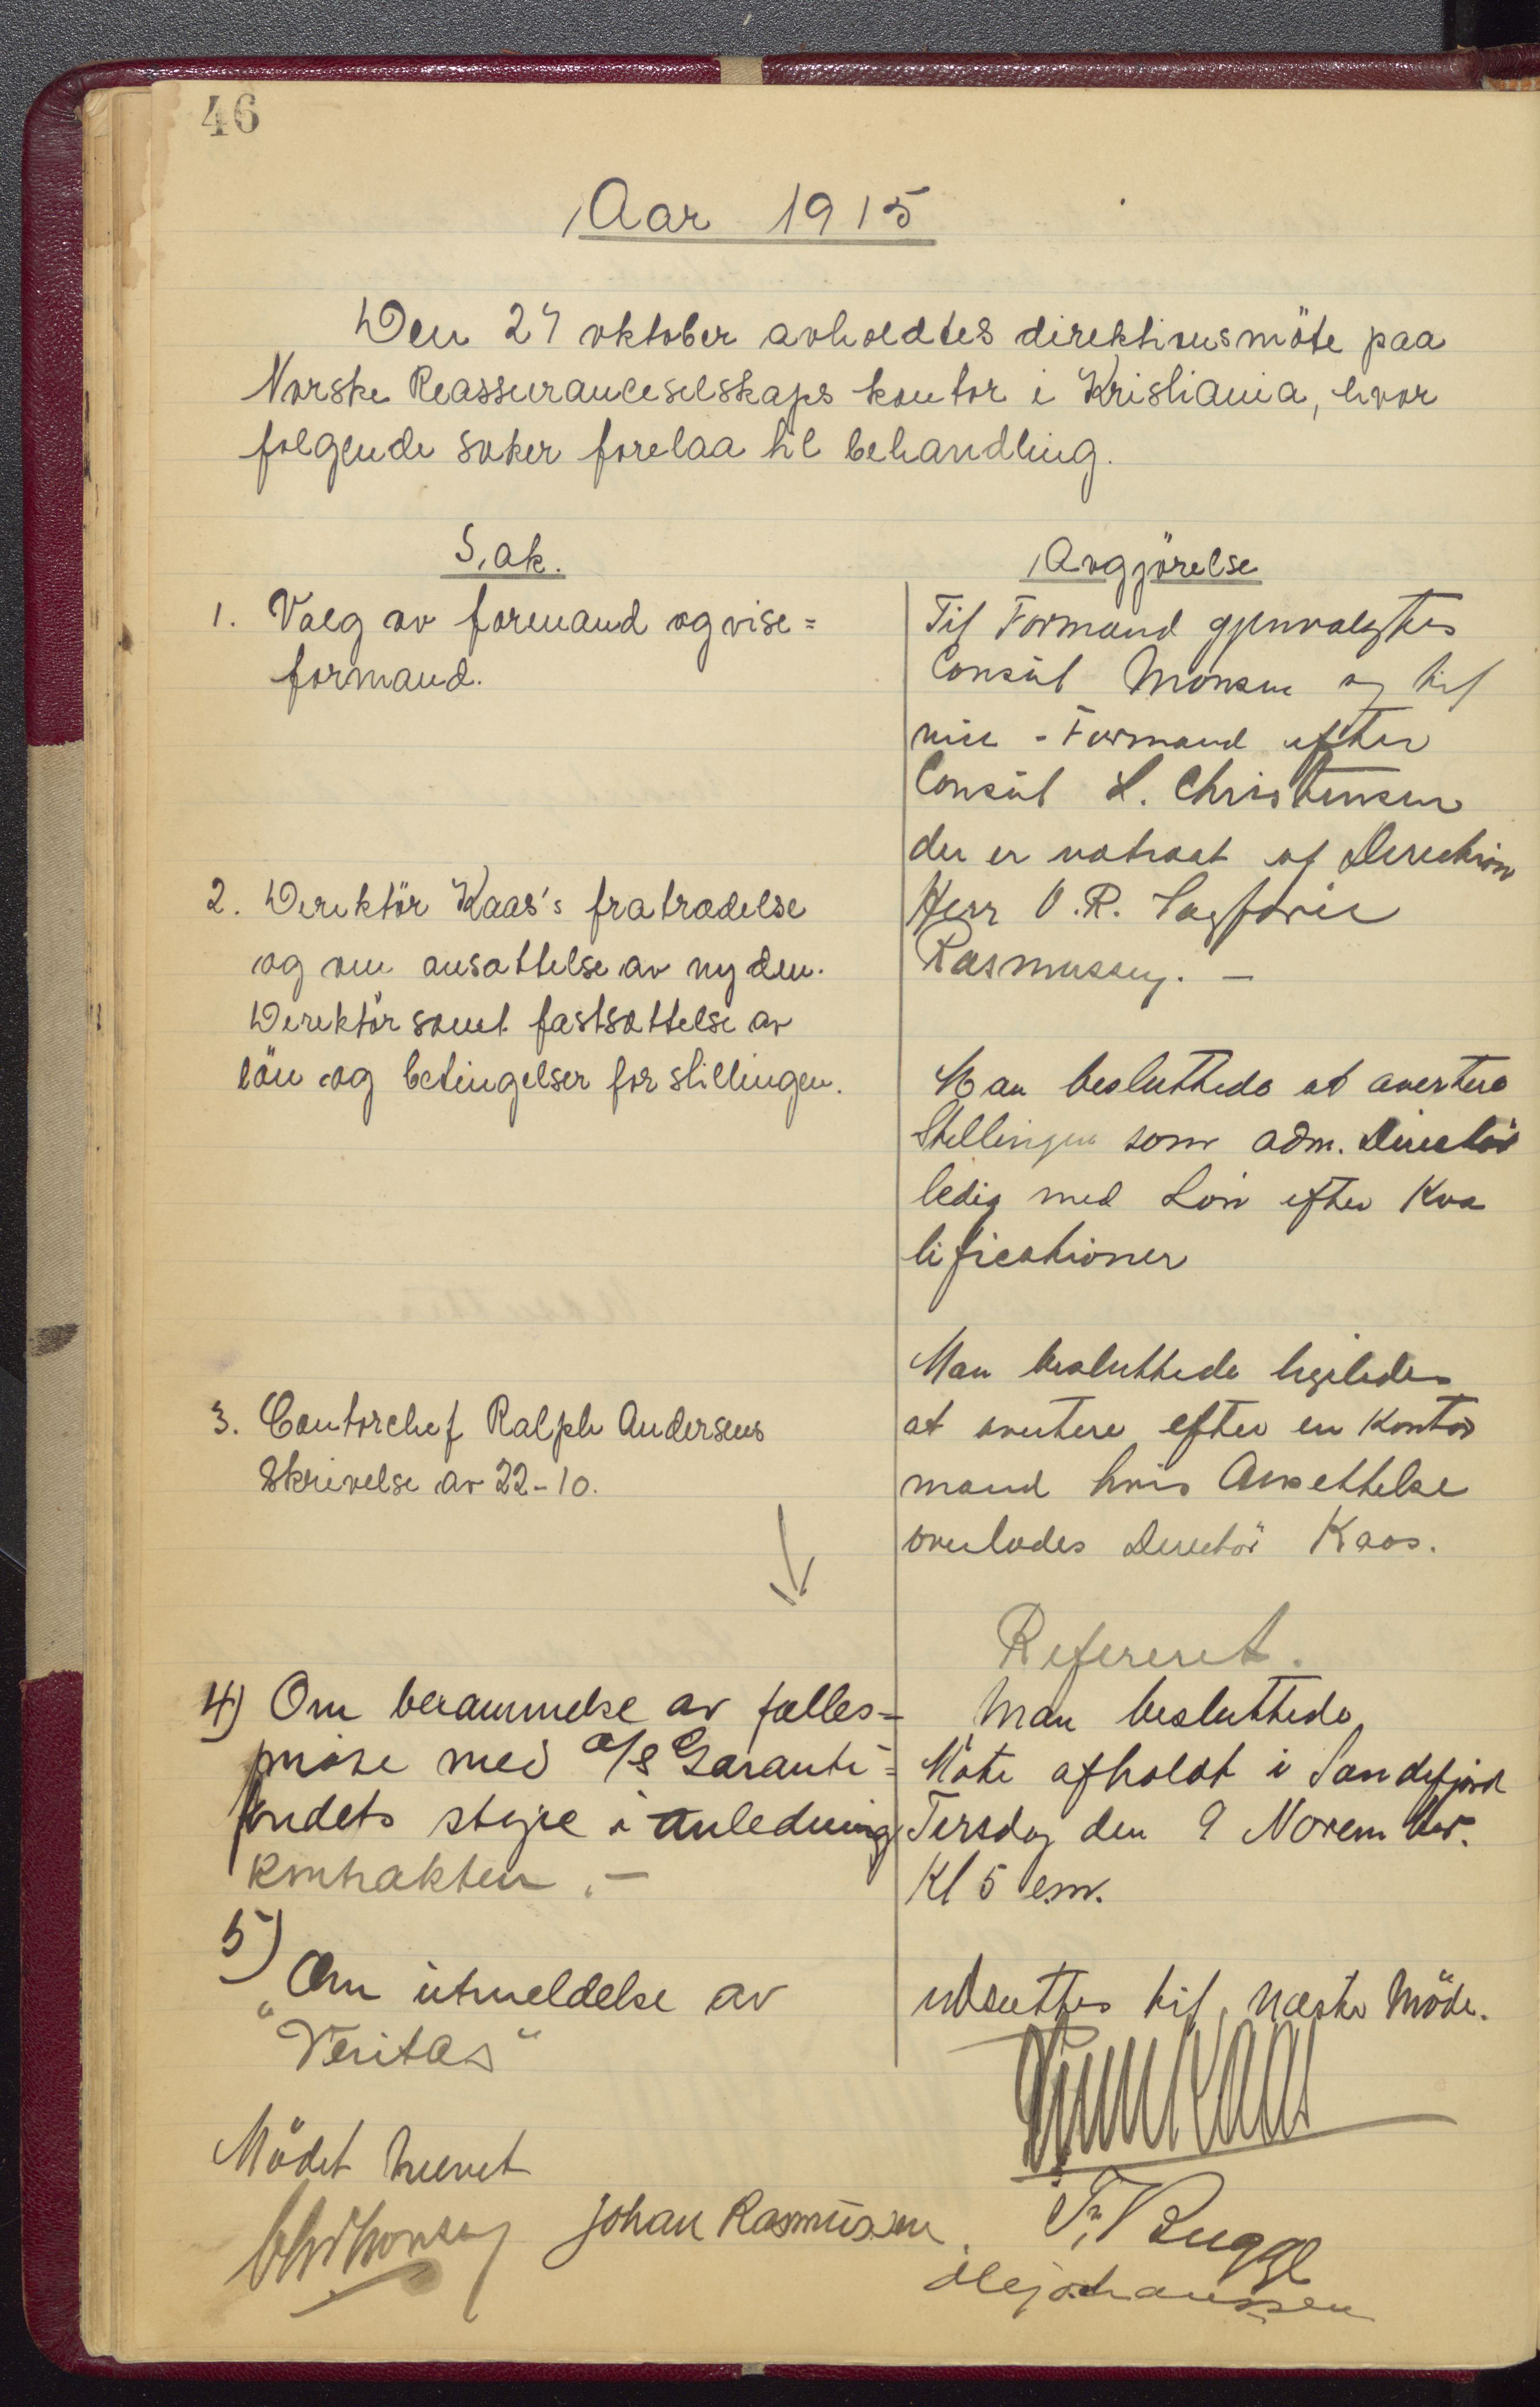 46
Aar 1915
Den 27 oktober avholdtes direktionsmöte paa
Norske Reassuranceselskaps kontor i Kristiania, hvor
følgende saker forelaa til behandling.
Sak.
1. Valg av formand og vise=
formand.
2. Direktör Kaas's fratrædelse
og om ansættelse av ny den.
Direktör samt fastsættelse av
lön og betingelser for stillingen.
3. Contorchef Ralph Andersens
Skrivelse av 22-10.
4) Om berammelse av fælles=
möte med A/S Garanti=
fondets styre i anledning
kontrakten.-
5) Om utmeldelse av
"Veritas"
Avgjörelse
Til Formand gjenvalgtes
Consul Monsen og til
vice-Formand efter
Consul L. Christensen
der er uttraat af Direction
Herr O.R.
Rasmussen. -
Man besluttede at avertere
Stillingen som adm. Directör
ledig med Lön efter Kva
lificationer
Man besluttede ligeledes
at avertere efter en Kontor
mand hvis Ansettelse
overlodes Directör Kaas.
Refereret.
Man besluttede
Möte afholdt i Sandefjord
Tirsdag den 9 November.
Kl 5 em.
udsættes til næste Möde.
Mödet hævet
Johan Rasmussen
Fr. Bugge
Ole Johanssen